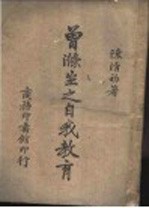 陳清初著
曾滌生之自我教育
商務印書館印行